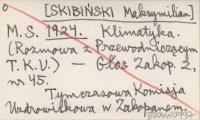 [SKIBIŃSKI Maksymilian]
M.S. 1924. Klimatyka.
(Rozmowa z Przewodniczącym
T.K.U.) — Głos Zakop. 2,
nr 45.
Tymczasowa Komisja
Uzdrowiskowa w Zakopanem.